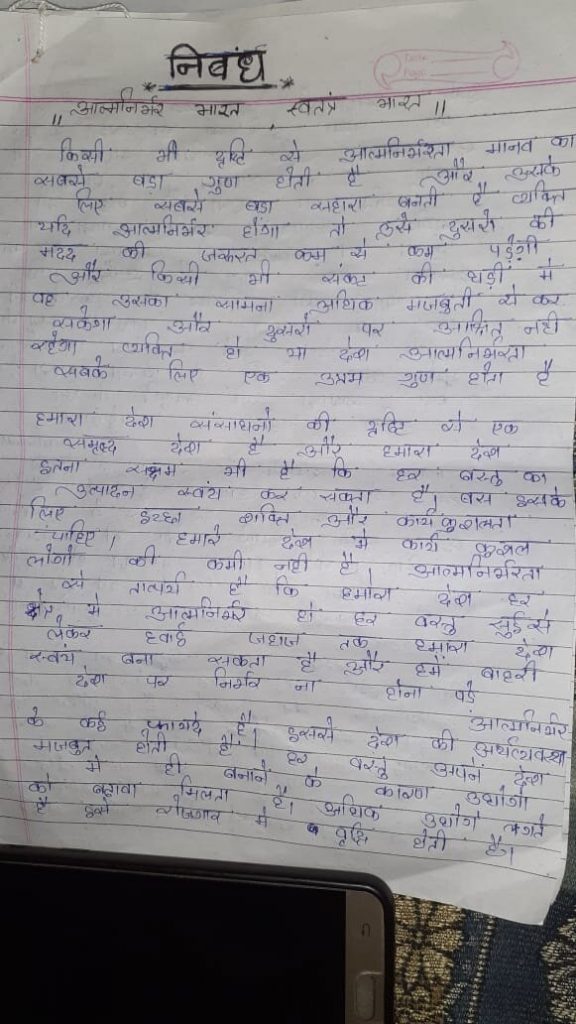 निबंध
"आत्मनिर्भर भारत स्वतंत्र भारत"
किसी भी दृष्टि से आत्मनिर्भरता मानव का
सबसे बड़ा गुण होती है और उसके
लिए सबसे बड़ा सहारा बनती है व्यक्ति
यदि आत्मनिर्भर होगा तो उसे दुसरो की
मदद की जरूरत कम से कम पड़ेगी
और किसी भी संकट की घड़ी में
वह उसका सामना अधिक मजबुती से कर
सकेगा और दुसरो पर आश्रित नही
रहेगा व्यक्ति हो या देश आत्मनिर्भरता
सबके लिए एक उत्तम गुण होता है
हमारा देश संसाधनो की दृष्टि से एक
समृध्द देश है और हमारा देश
इतना सक्षम भी है कि हर वस्तु का
उत्पादन स्वंय कर सकता है। बस इसके
लिए इच्छा शक्ति और कार्य कुशलता
चाहिए। हमारे देश मे कार्य कुशल
लोगो की कमी नही है। आत्मनिर्भरता
से तात्पर्य है कि हमारा देश हर
क्षेत्र मे आत्मनिर्भर हो हर वस्तु सुई से
लेकर हवाई जहाज तक हमारा देश
स्वंय बना सकता है और हमें बाहरी
देश पर निर्भर ना होना पडे
आत्मनिर्भर
के कई फायदे है इससे देश की अर्थव्यवस्था
मजबुत होती है। हर वस्तु अपने देश
मे ही बनाने के कारण उद्योगो
को बढ़ावा मिलता है। अधिक उद्योग लगते
है इसे रोजगार मे वृद्धि होती है।